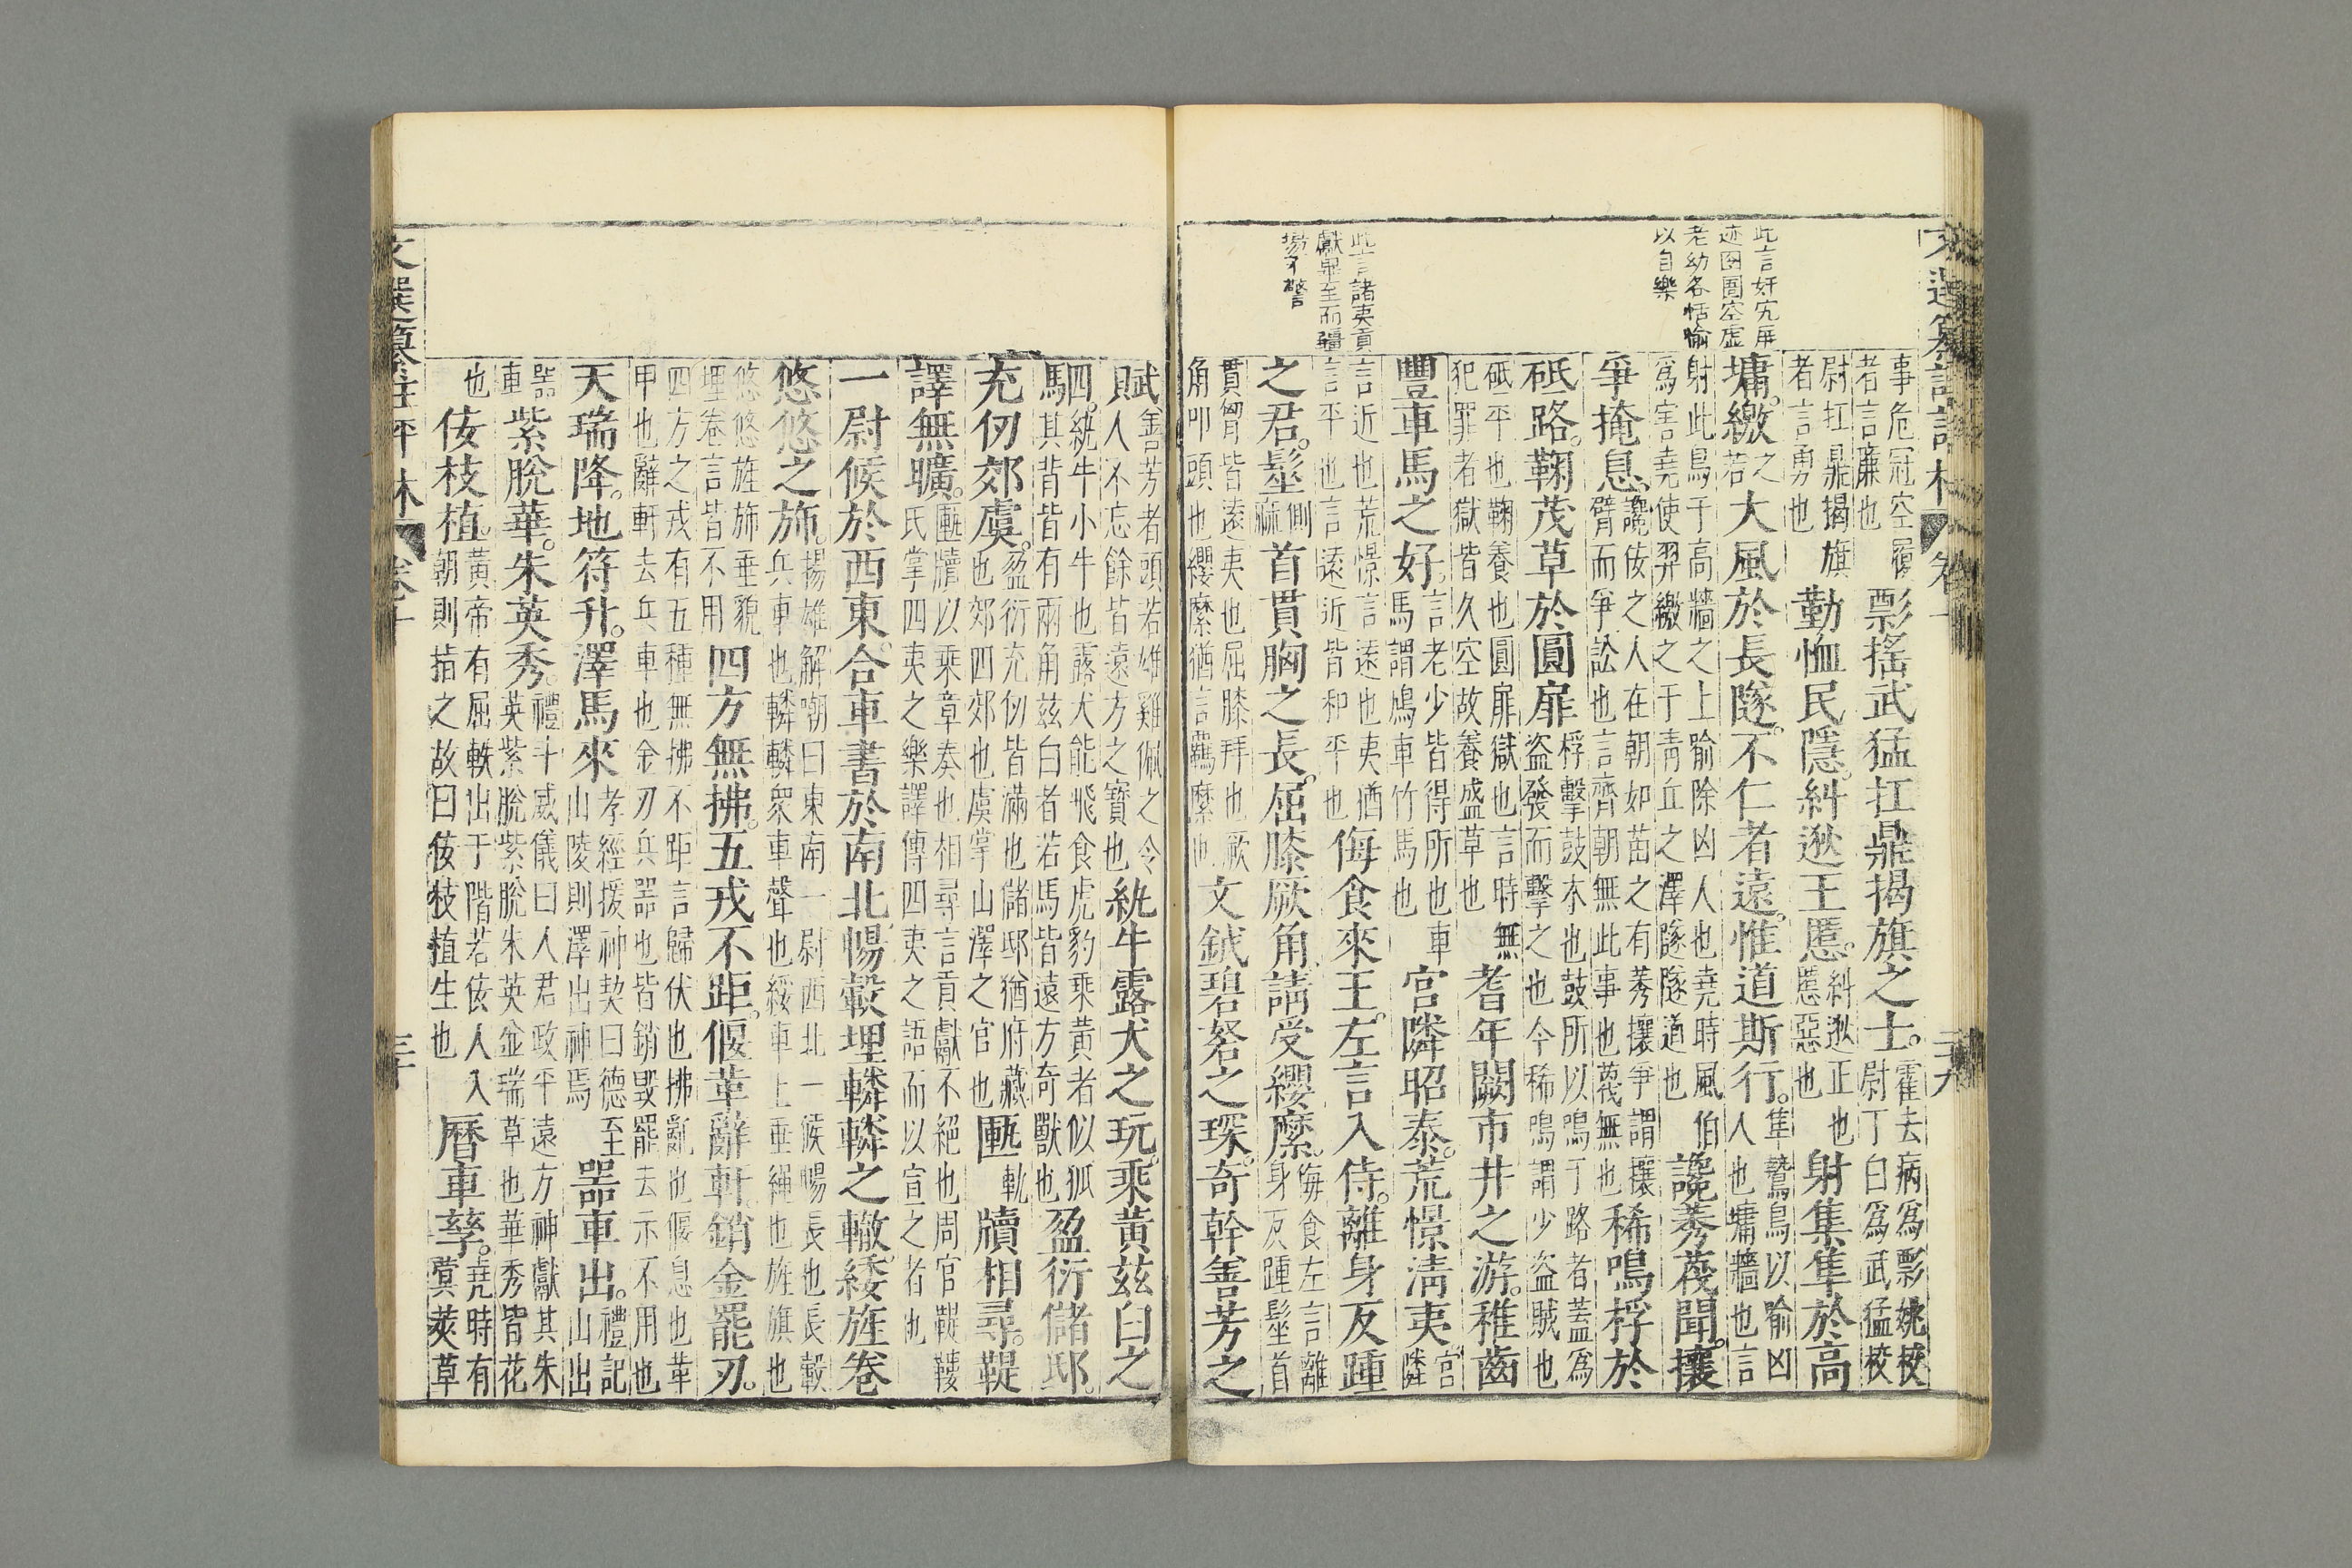 文選纂註評林 卷十 二十九
此言奸宄屏
迹囹圄空虛
老幼各恬愉
以自樂
此言諸夷貢
獻畢至而疆
場不警
事危冠空履
者言廉也
彯搖武猛扛鼎揭旗之士。
霍去病爲彯姚校
尉丁白爲武猛校
尉扛鼎揭旗
者言勇也
勤恤民隱。糾逖王慝。
糾逖正也
慝惡也
射集隼於高
墉。繳
之
若
大風於長隧。不仁者遠。惟道斯行。
隼鷙鳥以喻凶
人也墉牆也言
射此鳥于高牆之上喻除凶人也堯時風伯
爲害堯使羿繳之于青丘之澤隧隧道也
讒莠蔑聞。攘
爭掩息。
讒佞之人在朝如苗之有莠攘爭謂攘
臂而爭訟也言齊朝無此事也蔑無也
稀鳴桴於
砥路。鞠茂草於圓扉
桴擊鼓木也鼓所以鳴于路者蓋爲
盜發而擊之也今稀鳴謂少盜賊也
砥平也鞠養也圓扉獄也言時無
犯罪者獄皆久空故養盛草也
耆年闕市井之游。稚齒
豐車馬之好。
言老少皆得所也車
馬謂鳩車竹馬也
宮隣昭泰。荒憬清夷
宮
隣
言近也荒憬言遠也夷猶
言平也言遠近皆和平也
侮食來王。左言入侍。離身反踵
之君。髽
側
麻
首貫胸之長。屈膝厥角。請受纓縻。
侮食左言離
身反踵髽首
貫胷皆遠夷也屈膝拜也厥
角叩頭也纓縻猶言羈縻也
文鉞碧砮之琛。奇幹善芳之
賦
善芳者頭若雄雞佩之令
人不忘餘皆遠方之寶也
紈牛露犬之玩。乘黄茲白之
駟。
紈牛小牛也露犬能飛食虎豹乘黄者似狐
其背皆有兩角茲白者若馬皆遠方奇獸也
盈衍儲邸。
充仞郊虞。
盈衍充仞皆滿也儲邸猶府藏
也郊四郊也虞掌山澤之官也
匭
軌
牘相尋。鞮
譯無曠。
匭牘以乘章奏也相尋言貢獻不絕也周官鞮鞻
氏掌四夷之樂譯傳四夷之語而以宣之者也
一尉候於西東。合車書於南北。暢轂埋轔轔之轍。綏旌卷
悠悠之斾。
揚雄解嘲曰東南一尉西北一候暢長也長轂
兵車也轔轔衆車聲也綏車上垂繩也旌旗也
悠悠旌斾垂貌
埋卷言皆不用
四方無拂。五戎不距。偃革辭軒。銷金罷刃。
四方之戎有五種無拂不距言歸伏也拂亂也偃息也革
甲也辭軒去兵車也金刃兵噐也皆銷毁罷去示不用也
天瑞降。地符升。澤馬來
孝經援神契曰德至
山陵則澤出神馬
噐車出。
禮記
山出
噐
車
紫脫華。朱英秀。
禮斗威儀曰人君政平遠方神獻其朱
英紫脫紫脫朱英並瑞草也華秀皆花
也
佞枝植。
黃帝有屈軼出于階若佞人入
朝則指之故曰佞枝植生也
曆車孳。
堯時有
蓂莢草
文選纂註評林 卷十 三十